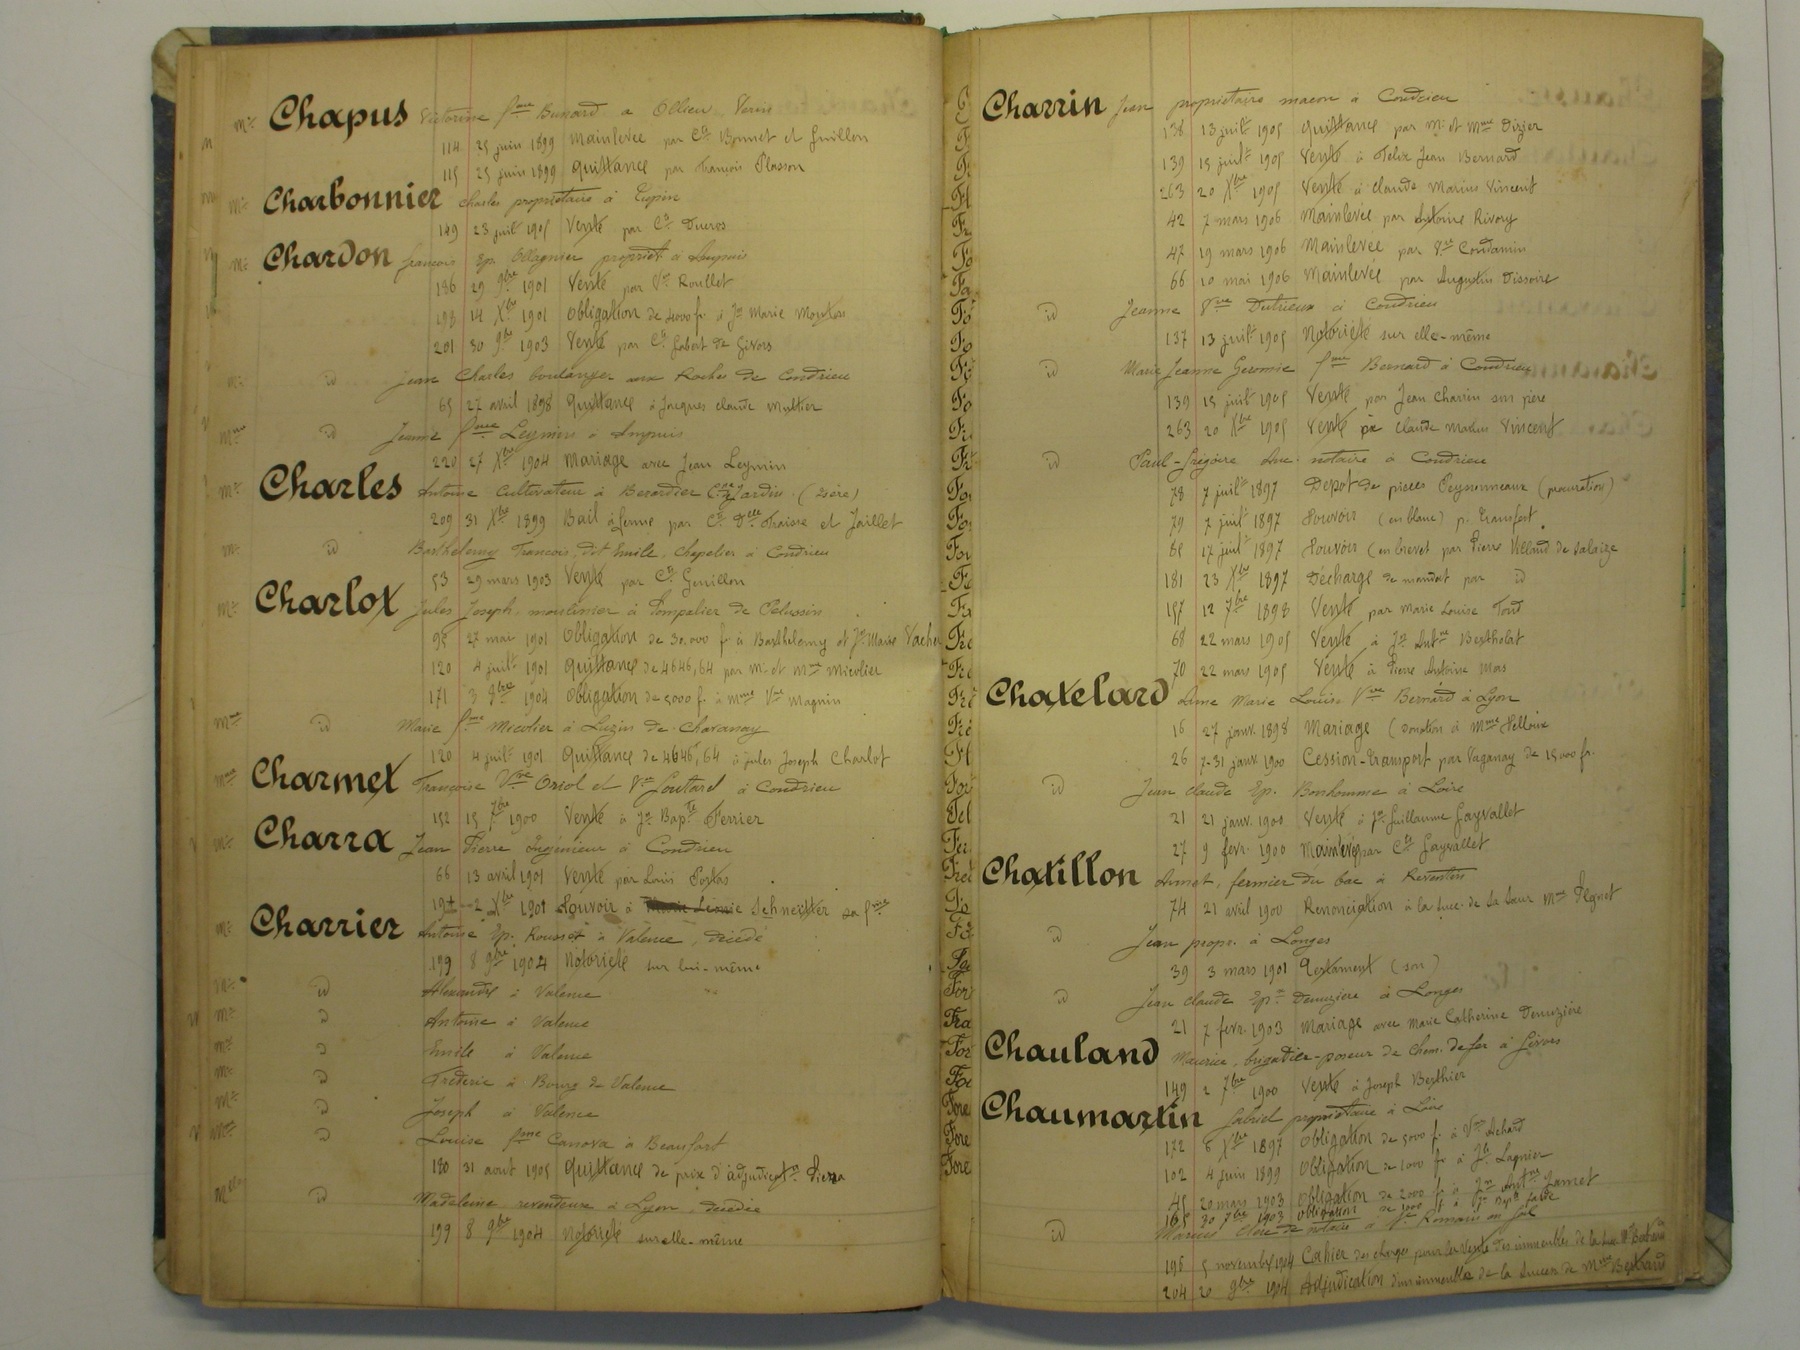 Mme Chapus Victorine fme Bunard a Ollieu Verin
114 25 juin 1899 Mainlevée par Cts Bonnet et Guillon
115 25 juin 1899 Quittance par François Plasson
Mr Charbonnier Charles propriétaire à Tupin
149 23 juilt 1905 Vente par Cts Ducros
Mr Chardon François Ep. Ollagnier propriét à Ampuis
186 29 9bre 1901 Vente par Vve Roullet
193 14 Xbre 1901 Obligation de 4000 fr. à Jn Marie Montos
201 30 9bre 1903 Vente par Cts Gabert de Givors
Mr id Jean Charles boulanger aux Roches de Condrieu
65 27 avril 1898 Quittance à Jacques Claude Multier
Mme id Jeanne fme Leymin à Ampuis
220 27 Xbre 1904 Mariage avec Jean Leymin
Mr Charles Antoine Cultivateur à (Isère)
209 31 Xbre 1899 Bail à ferme par Cts Dlle Fraisse et Jaillet
Mr id Barthelemy François, dit Emile, chapelier à Condrieu
53 29 mars 1903 Vente par Cts Genillon
Mr Charlot Jules Joseph, moulinier à Pompalier de Pelussin
95 27 mai 1901 Obligation de 30.000 fr à Barthelemy et Jn Marie Vacher
120 4 juilt 1901 Quittance de 4646,64 par Mr et Mme Micolier
171 3 9bre 1904 Obligation de 5000 f. à Mme Vve Magnin
Mme id Marie fme Micolier à Luzin de Chavanay
120 4 juilt 1901 Quittance de 4646,64 à Jules Joseph Charlot
Mme Charmet Françoise Vve Oriol et Vve Goutarel à Condrieu
152 15 7bre 1900 Vente à Jn Bapte Ferrier
Charra Jean Pierre Ingénieur à Condrieu
66 13 avril 1901 Vente par Louis Portas
2 Xbre 1901 Pouvoir à Schneitter sa fme
Mr Charrier Antoine Ep. Rousset à Valence, décédé
199 8 9bre 1904 Notoriété sur lui-même
Mr id Alexandre à Valence
Mr d Antoine à Valence
Mr d Emile à Valence
Mr d Fréderic à Bourg de Valence
Mr d Joseph à Valence
Mme d Louise fme Canova à Beaufort
180 31 août 1905 Quittance de prix d'adjudicat.n
Mlle id Madeleine, revendeuse à Lyon, décédée
199 8 9bre 1904 Notoriété sur elle-même
Charrin Jean propriétaire maçon à Condrieu
138 13 juilt 1905 Quittance par Mr et Mme Dizier
139 15 juilt 1905 Vente à Felix Jean Bernard
263 20 Xbre 1905 Vente à Claude Marius Vincent
42 7 mars 1906 Mainlevée par Antoine Rivory
47 19 mars 1906 Mainlevée par Vve Condamin
66 10 mai 1906 Mainlevée par Augustin Dissoire
id Jeanne Vve Dutrieux à Condrieu
137 13 juilt 1905 Notoriété sur elle-même
id Marie Jeanne Geromie fme Bernard à Condrieu
139 15 juilt 1905 Vente par Jean Charrin son père
263 20 Xbre 1905 Vente par Claude Marius Vincent
id Paul-Grégoire Anc. notaire à Condrieu
78 7 juilt 1897 Depot de pieces Peyssonneaux (procuration)
79 7 juilt 1897 Pouvoir (en blanc) p. transfert
17 juilt 1897 Pouvoir (en brevet par Pierre Villard de Salaize
181 23 Xbre 1897 Décharge de mandat par id
157 12 7bre 1898 Vente par Marie Louise
68 22 mars 1905 Vente à Jn Antne Bertholat
70 22 mars 1905 Vente à Pierre Antoine Mas
Chatelard Anne Marie Louise Vve Bernard à Lyon
16 27 janv. 1898 Mariage (donation à Mme
26 7-31 janv. 1900 Cession-Transport par Vaganay de 15.000 fr.
id Jean Claude Ep. Bonhomme à Loire
21 21 janv. 1900 Vente à Jn Guillaume Gayvallet
27 9 fevr. 1900 Mainlevée par Cts Gayvallet
Chatillon Annet, fermier du bac à Reventin
74 21 avril 1900 Renonciation à la succ. de sa sœur Mme Pegnet
id Jean propr. à Longes
39 3 mars 1901 Testament (son)
id Jean Claude Ep. Denuzière à Longes
21 7 fevr. 1903 Mariage avec Marie Catherine Denuzière
Chauland Maurice, brigadier-poseur de chem. de fer à Givors
149 2 7bre 1900 Vente à Joseph Berthier
Chaumartin Gabriel propriétaire à Loire
172 6 Xbre 1897 Obligation de 5000 f. à Vve Achard
102 4 juin 1899 Obligation de 1000 fr à Jh Lagnier
45 20 mars 1903 Obligation de 2000 fr à Jn Antne Jamet
165 30 7bre 1903 Obligation de 1000 f. à Jn Bapte
id Marius Clerc de notaire à St Romain en Gal
196 5 novembre 1904 Cahier des charges pour les Vente des immeubles de la succ.
204 20 9bre 1904 Adjudication d'un immeuble de la succes. de Mme